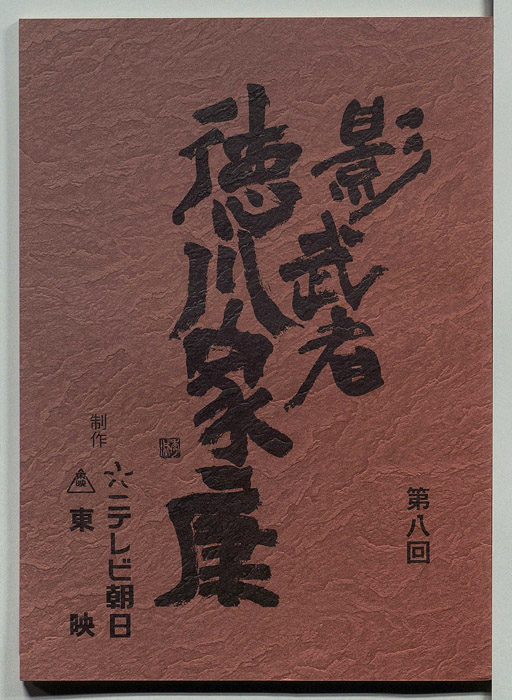 影武者
徳川家康
第八回
制作
テレビ朝日
東映